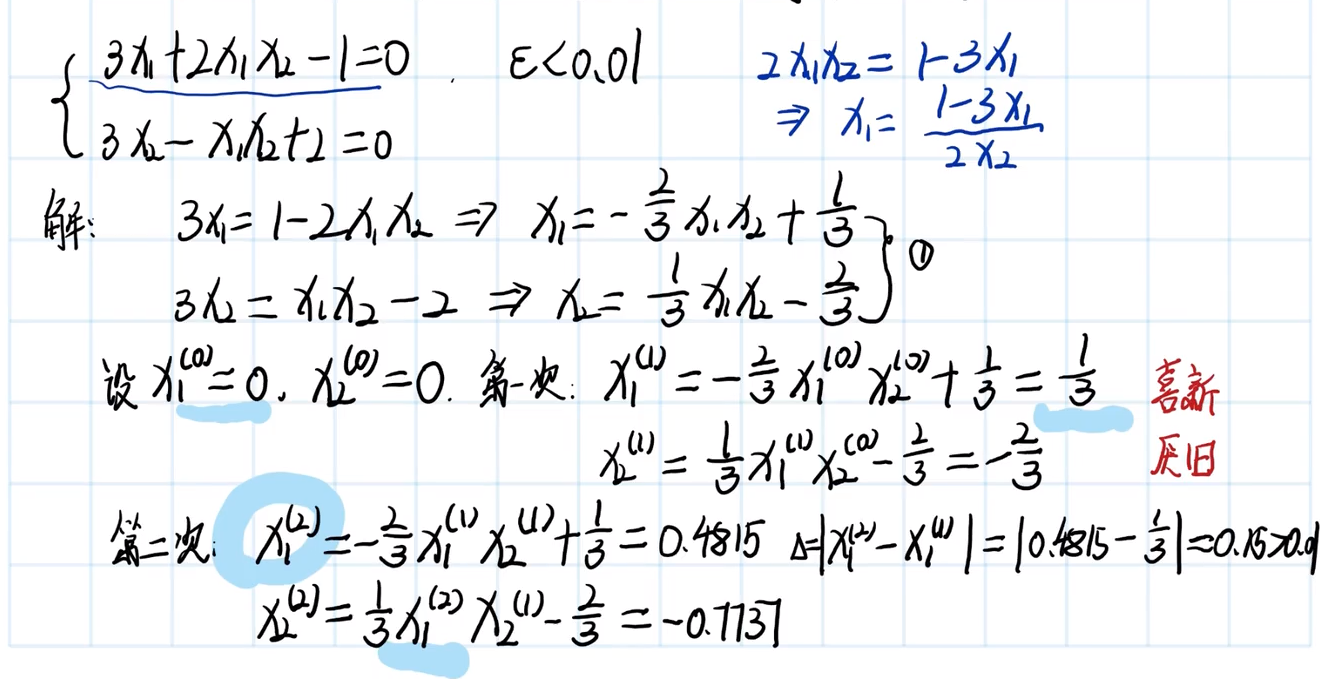 3x₁+2x₁x₂-1=0 . ε<0.01 2x₁x₂=1-3x₁
3x₂-x₁x₂+2=0 ⇒ x₁=\frac{1-3x₁}{2x₂}
解: 3x₁=1-2x₁x₂ ⇒ x₁=-\frac{2}{3}x₁x₂+\frac{1}{3}
3x₂=x₁x₂-2 ⇒ x₂=\frac{1}{3}x₁x₂-\frac{2}{3} ①
设 x₁⁽⁰⁾=0, x₂⁽⁰⁾=0. 第一次: x₁⁽¹⁾=-\frac{2}{3}x₁⁽⁰⁾x₂⁽⁰⁾+\frac{1}{3}=\frac{1}{3} 喜新
x₂⁽¹⁾=\frac{1}{3}x₁⁽¹⁾x₂⁽⁰⁾-\frac{2}{3}=-\frac{2}{3} 厌旧
第二次: x₁⁽²⁾=-\frac{2}{3}x₁⁽¹⁾x₂⁽¹⁾+\frac{1}{3}=0.4815 Δ=|x₁⁽²⁾-x₁⁽¹⁾|=|0.4815-\frac{1}{3}|=0.15>0.01
x₂⁽²⁾=\frac{1}{3}x₁⁽²⁾x₂⁽¹⁾-\frac{2}{3}=-0.7737